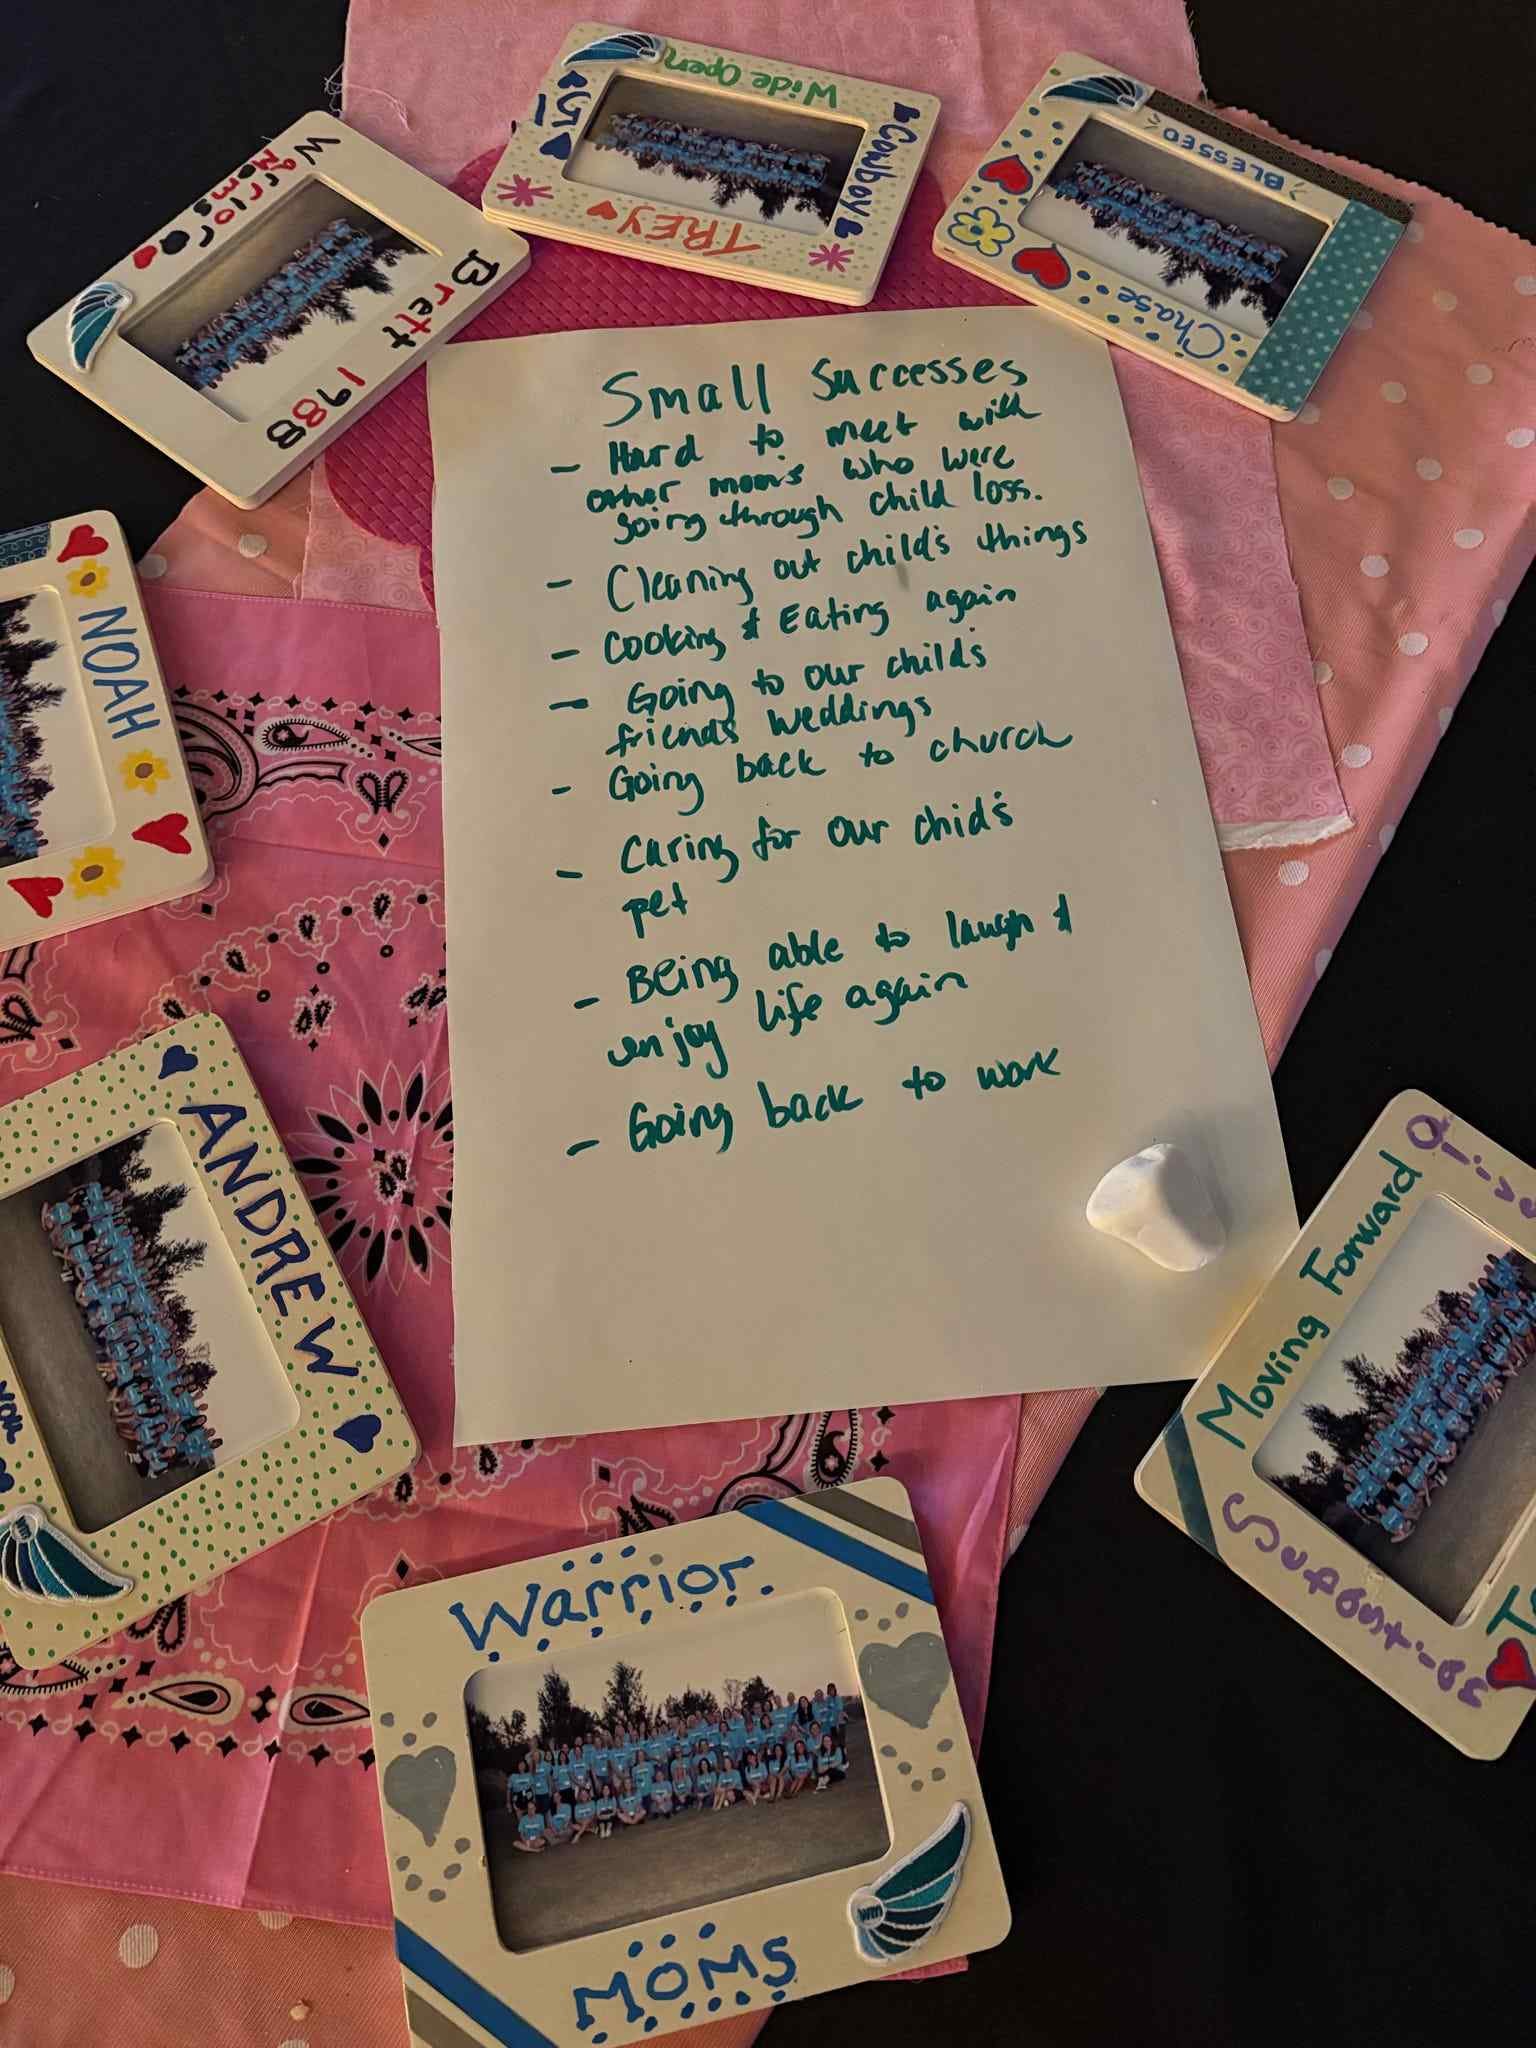 Wide Open
G
Cowboy
TREY
BLESSED
Chase
Warrior
Moms
Brett 1988
Small Successes
- Hard to meet with
other mom's who were
going through child loss.
- Cleaning out child's things
- Cooking & Eating again
- Going to our child's
friends weddings
- Going back to church
- Caring for our chid's
pet
- Being able to laugh &
enjoy life again
- Going back to work
NOAH
ANDREW
Moving Forward
Warrior
MOMS
WM